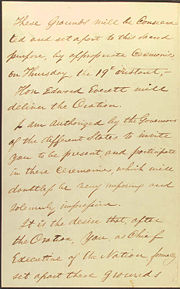 These Grounds will be Consecra
ted and set apart to this Sacred
purpose, by appropriate Ceremonies
on Thursday, the 19th instant,—
Hon Edward Everett will
deliver the Oration.
I am authorized by the Governors
of the different States to invite
you to be present, and participate
in these Ceremonies, which will
doubtless be very imposing and
solemnly impressive.
It is the desire that, after
the Oration, You, as Chief
Executive of the Nation, formally
set apart these grounds